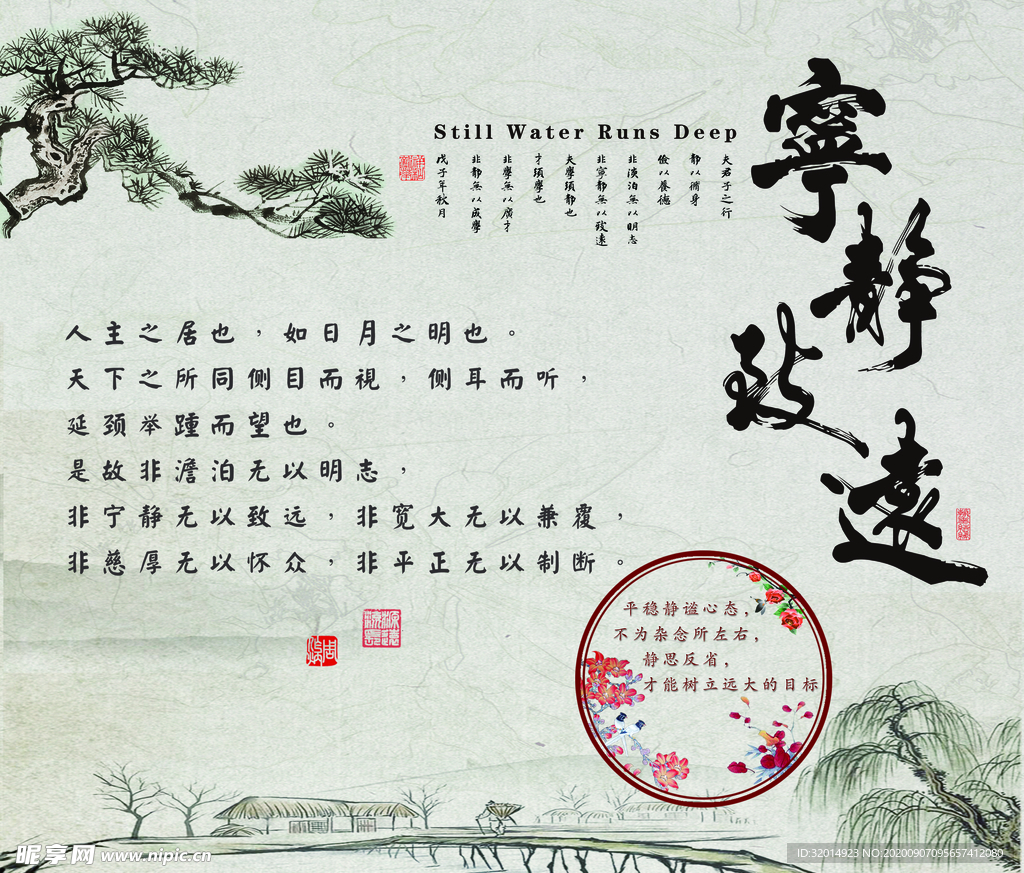 Still Water Runs Deep
夫君子之行
靜以修身
儉以養德
非淡泊無以明志
非寧靜無以致遠
夫學須靜也
才須學也
非學無以廣才
非靜無以成學
戊子年秋月
寧靜致遠
人主之居也，如日月之明也。
天下之所同侧目而視，侧耳而听，
延颈举踵而望也。
是故非澹泊无以明志，
非宁静无以致远，非宽大无以兼覆，
非慈厚无以怀众，非平正无以制断。
平稳静谧心态，
不为杂念所左右，
静思反省，
才能树立远大的目标
昵享网 www.nipic.cn
ID:32014923 NO:20200907095657412080